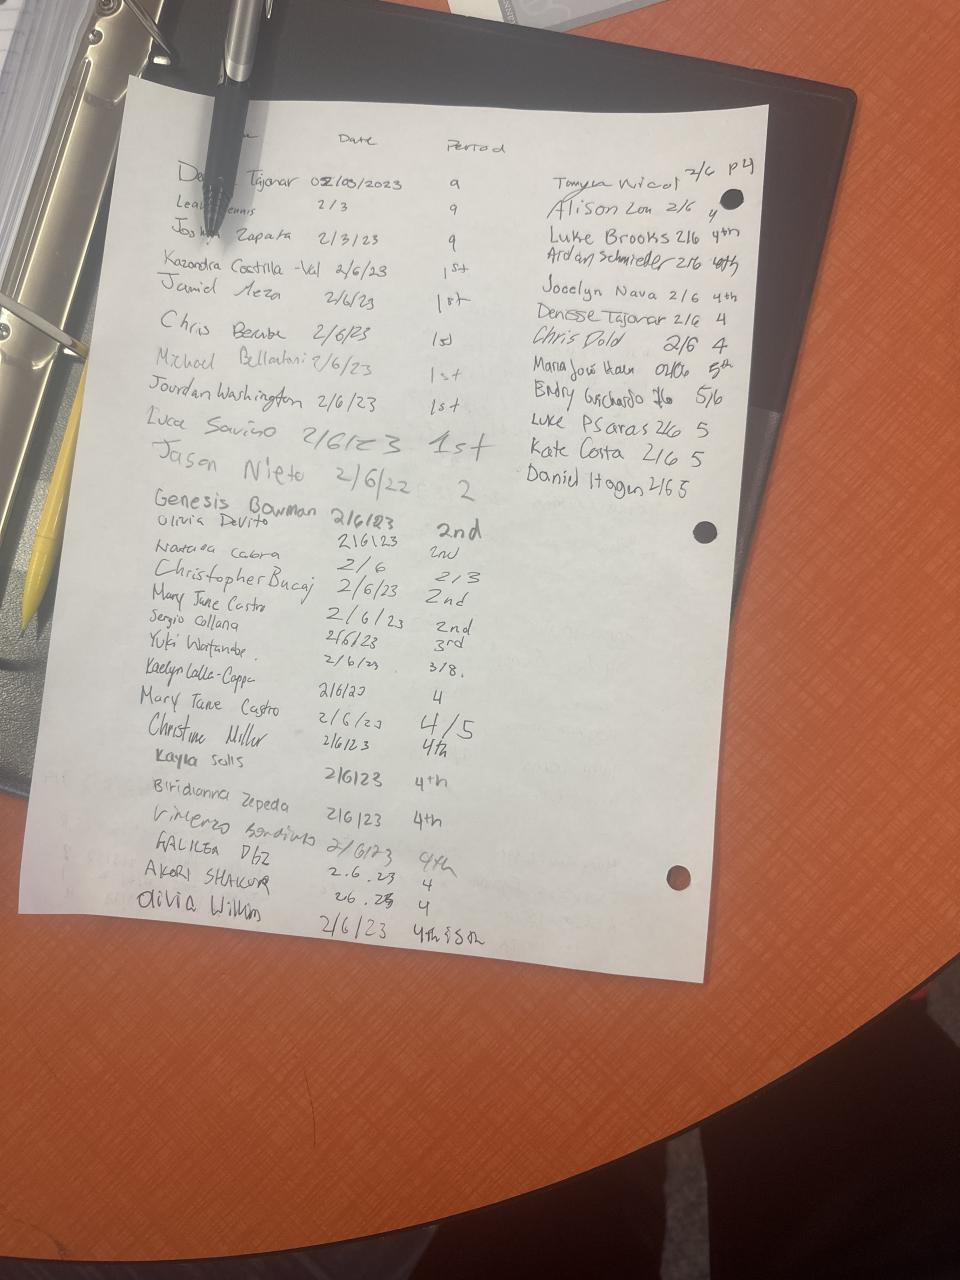 Date Period
Tajonar 02/03/2023 9
2/3 9
Zapata 2/3/23 9
Kazandra Castilla-Val 2/6/23 1st
Jamiel Meza 2/6/23 1st
Chris Berube 2/6/23 1st
Michael 2/6/23 1st
Jourdan Washington 2/6/23 1st
Luca Savino 2/6/23 1st
Jason Nieto 2/6/22 2
Genesis Bowman 2/6/23 2nd
Olivia Devito 2/6/23 2nd
Cabra 2/6 2/3
Christopher Bucaj 2/6/23 2nd
Mary Jane Castro 2/6/23 2nd
Sergio Collana 2/6/23 3rd
Yuki Watanabe. 2/6/23 3/8.
Kaelyn Lalla-Coppa 2/6/23 4
Mary Jane Castro 2/6/23 4/5
Christine Miller 2/6/23 4th
Kayla Solis 2/6/23 4th
Biridianna Zepeda 2/6/23 4th
Vincenzo 2/6/23 4th
GALILEA 2.6.23 4
AKORI SHAKUR 2.6.23 4
Olivia Willim 2/6/23 4th & 5th
Nicol 2/6 P4
Alison Zou 2/6 4
Luke Brooks 2/6 4th
Aidan Schmieder 2/6 4th
Jocelyn Nava 2/6 4th
Denisse Tajonar 2/6 4
Chris Dold 2/6 4
Maria José 02/06 5th
Endry Guichardo 2/6 5/6
Luke Psaras 2/6 5
Kate Costa 2/6 5
Daniel Hagen 2/6 5